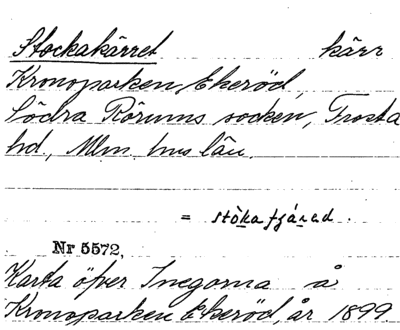 Stockakärret kärr
Kronoparken Ekeröd,
Södra Rörums socken, Frosta
hd, Mlm hus län.
= stòka fjárad.
Nr 5572,
Karta öfver Inegorna å
Kronoparken Ekeröd, år 1899.